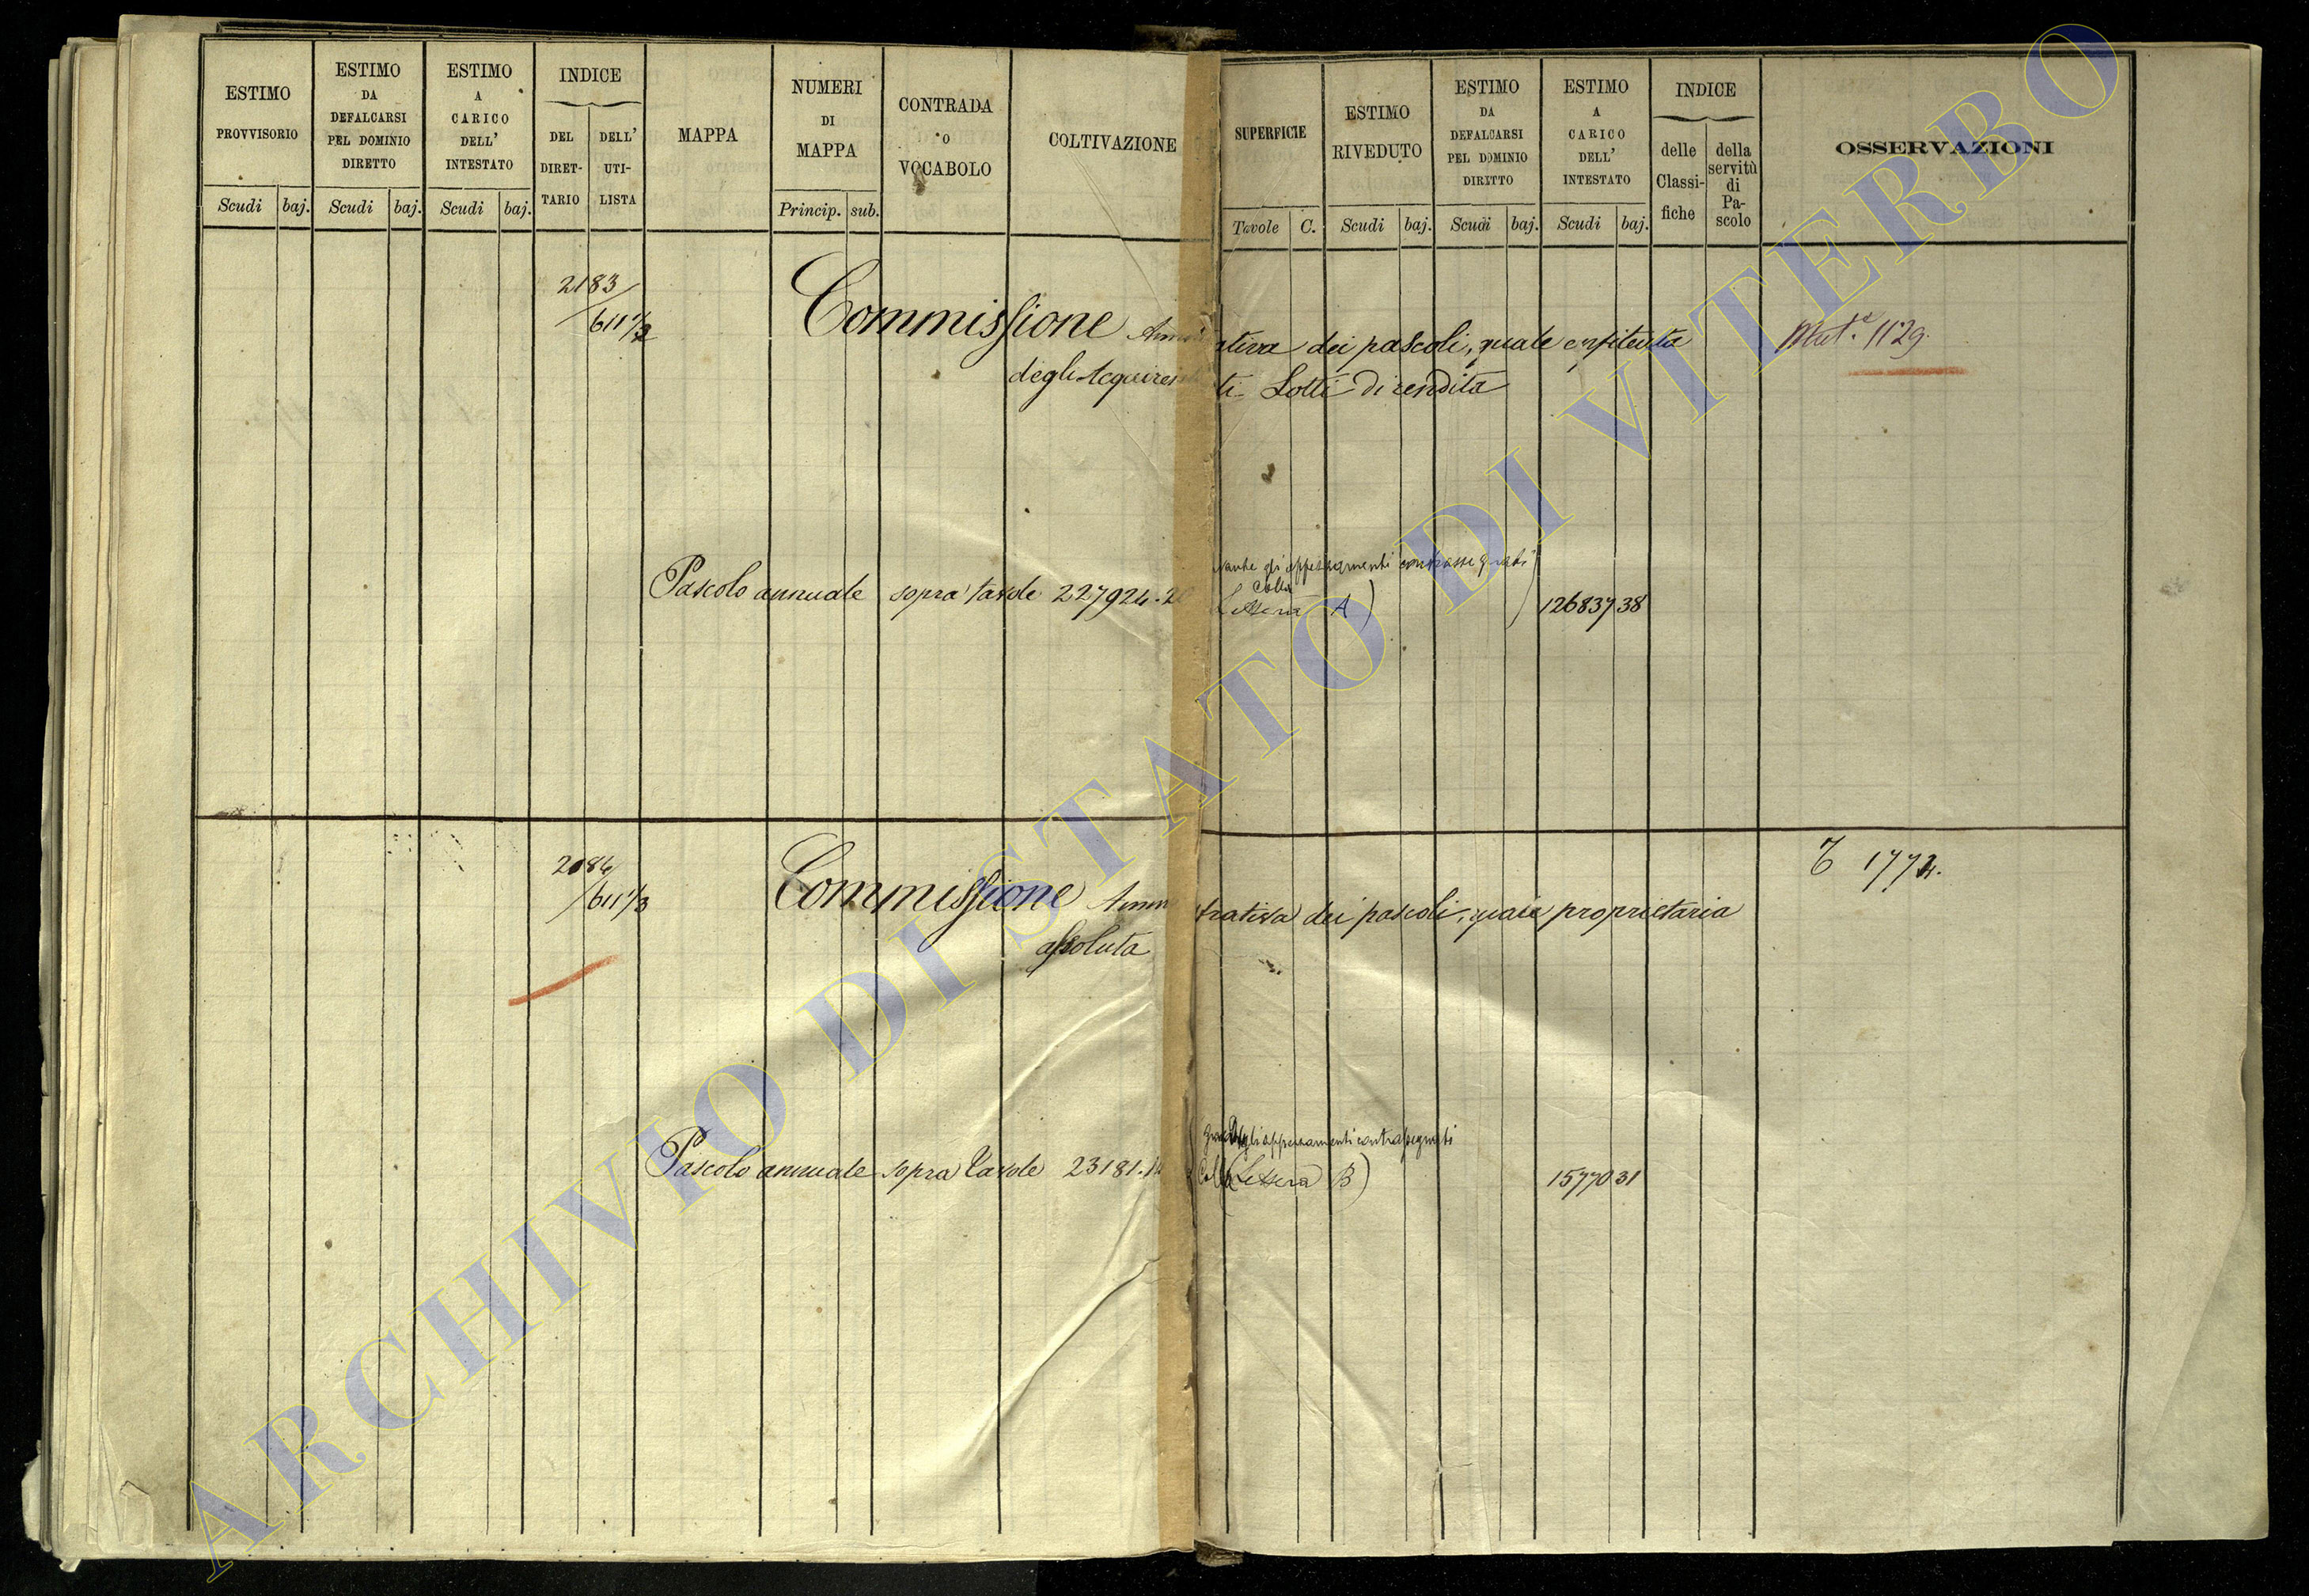 ESTIMO PROVVISORIO
Scudi baj.
ESTIMO DA DEFALCARSI PEL DOMINIO DIRETTO
Scudi baj.
ESTIMO A CARICO DELL' INTESTATO
Scudi baj.
INDICE
DEL DIRET-TARIO
DELL' UTI-LISTA
MAPPA
NUMERI DI MAPPA
Princip. sub.
CONTRADA o VOCABOLO
COLTIVAZIONE
SUPERFICIE
Tavole C.
ESTIMO RIVEDUTO
Scudi baj.
ESTIMO DA DEFALCARSI PEL DOMINIO DIRETTO
Scudi baj.
ESTIMO A CARICO DELL' INTESTATO
Scudi baj.
INDICE
delle Classi-fiche
della servitù di Pa-scolo
OSSERVAZIONI
2183
611 1/2
Commissione ativa dei pascoli, quale enfiteuta
degli Acquirenti Lotti di rendita
Mut.e 1129.
gli appezzamenti contrassegnati
colla
Pascolo annuale sopra tavole 227924.2 Lettera A) 126837 38
2084
611 1/3
Commissione Amm trativa dei pascoli, quale proprietaria
assoluta
1772.
gli appezzamenti contrassegnati
Pascolo annuale sopra Tavole 23181. Colla (Lettera B) 15770 31
ARCHIVIO DI STATO DI VITERBO